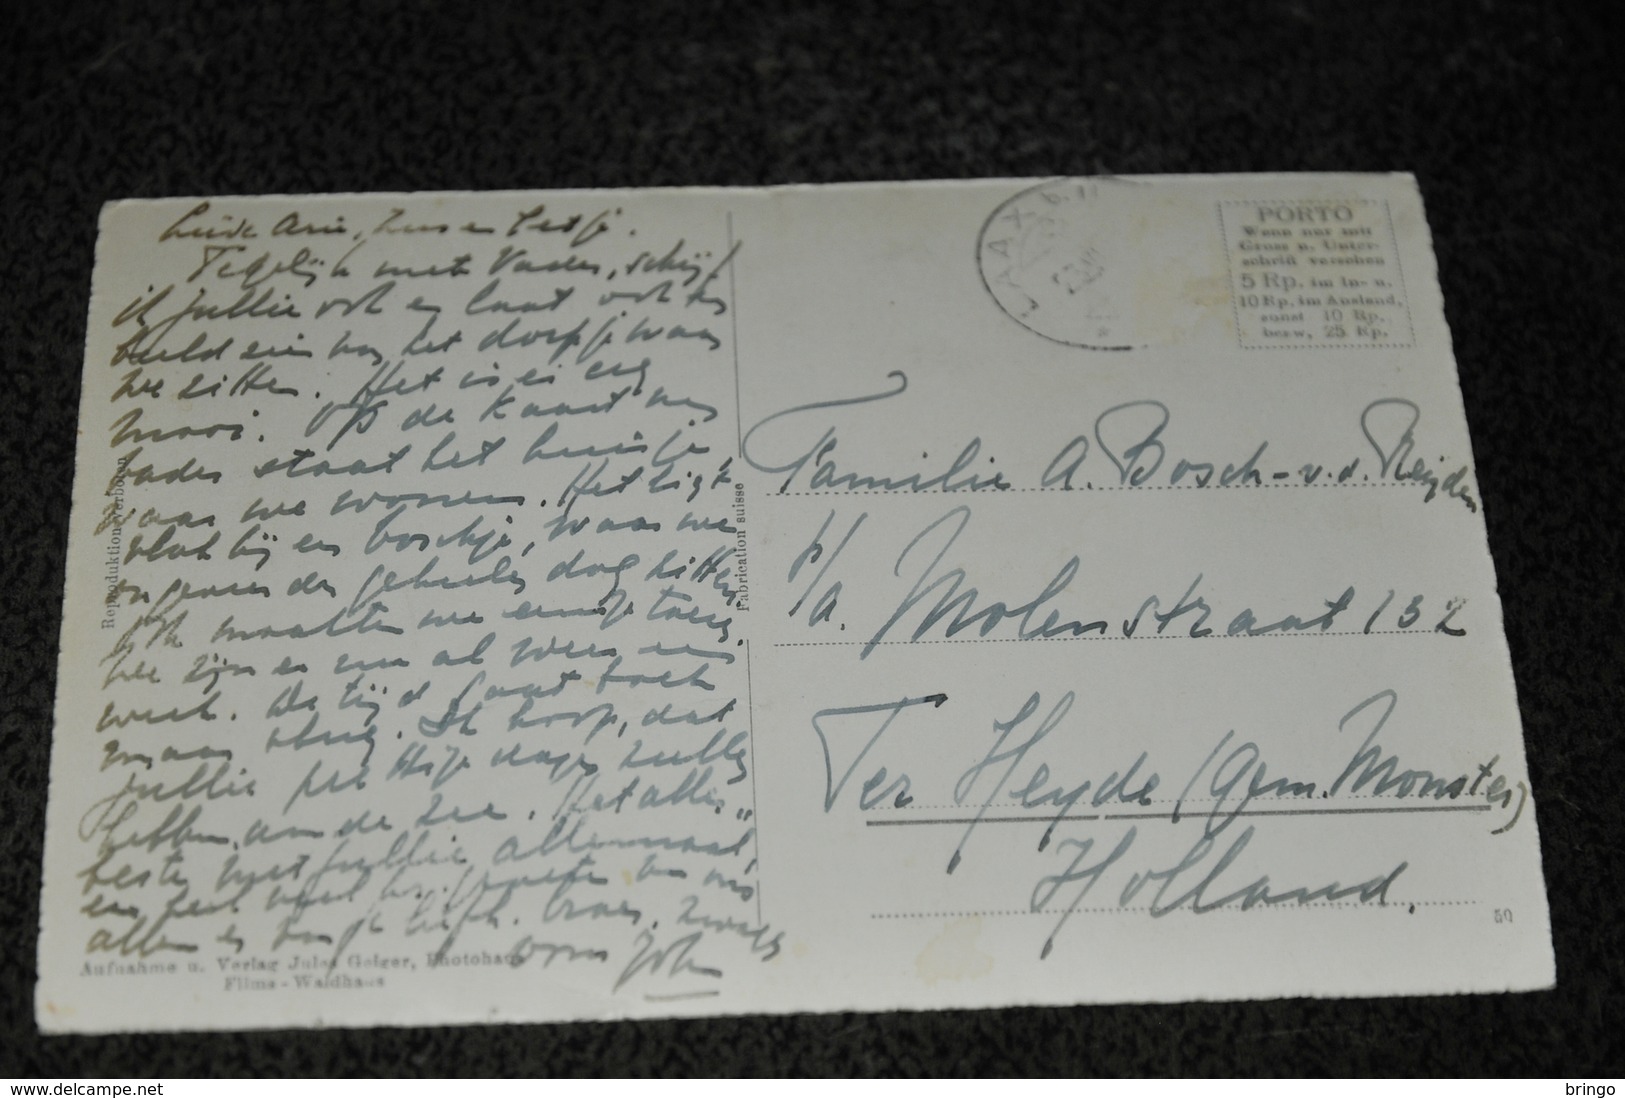 Tegelijk met Vader, schrijf
ik jullie ook en laat ook een
beeld zien van het dorpje waar
we zitten. Het is er erg
mooi. Op de kaart van
vader staat het huisje
waar we wonen. Het ligt
vlak bij een boschje, waar we
den geheelen dag zitten
maakten we een
we zijn er nu al weer een
week. De tijd gaat toch
maar vlug. Ik hoop, dat
jullie dagen zullen
hebben aan de zee. Het aller-
beste met jullie allemaal,
en heel veel groeten van ons
allen
Joh
Reproduktion verboten
Fabrication suisse
Aufnahme u. Verlag Jules Geiger, Photohaus
Flims - Waldhaus
LAAX
PORTO
Wenn nur mit
Gruss u. Unter-
schrift versehen
5 Rp. im In- u.
10 Rp. im Ausland,
sonst 10 Rp.
bezw. 25 Rp.
Familie A. Bosch-v.d. Reijden
p/a. Molenstraat 132
Ter Heyde (gem. Monster)
Holland.
50
delcampe.net
bringo